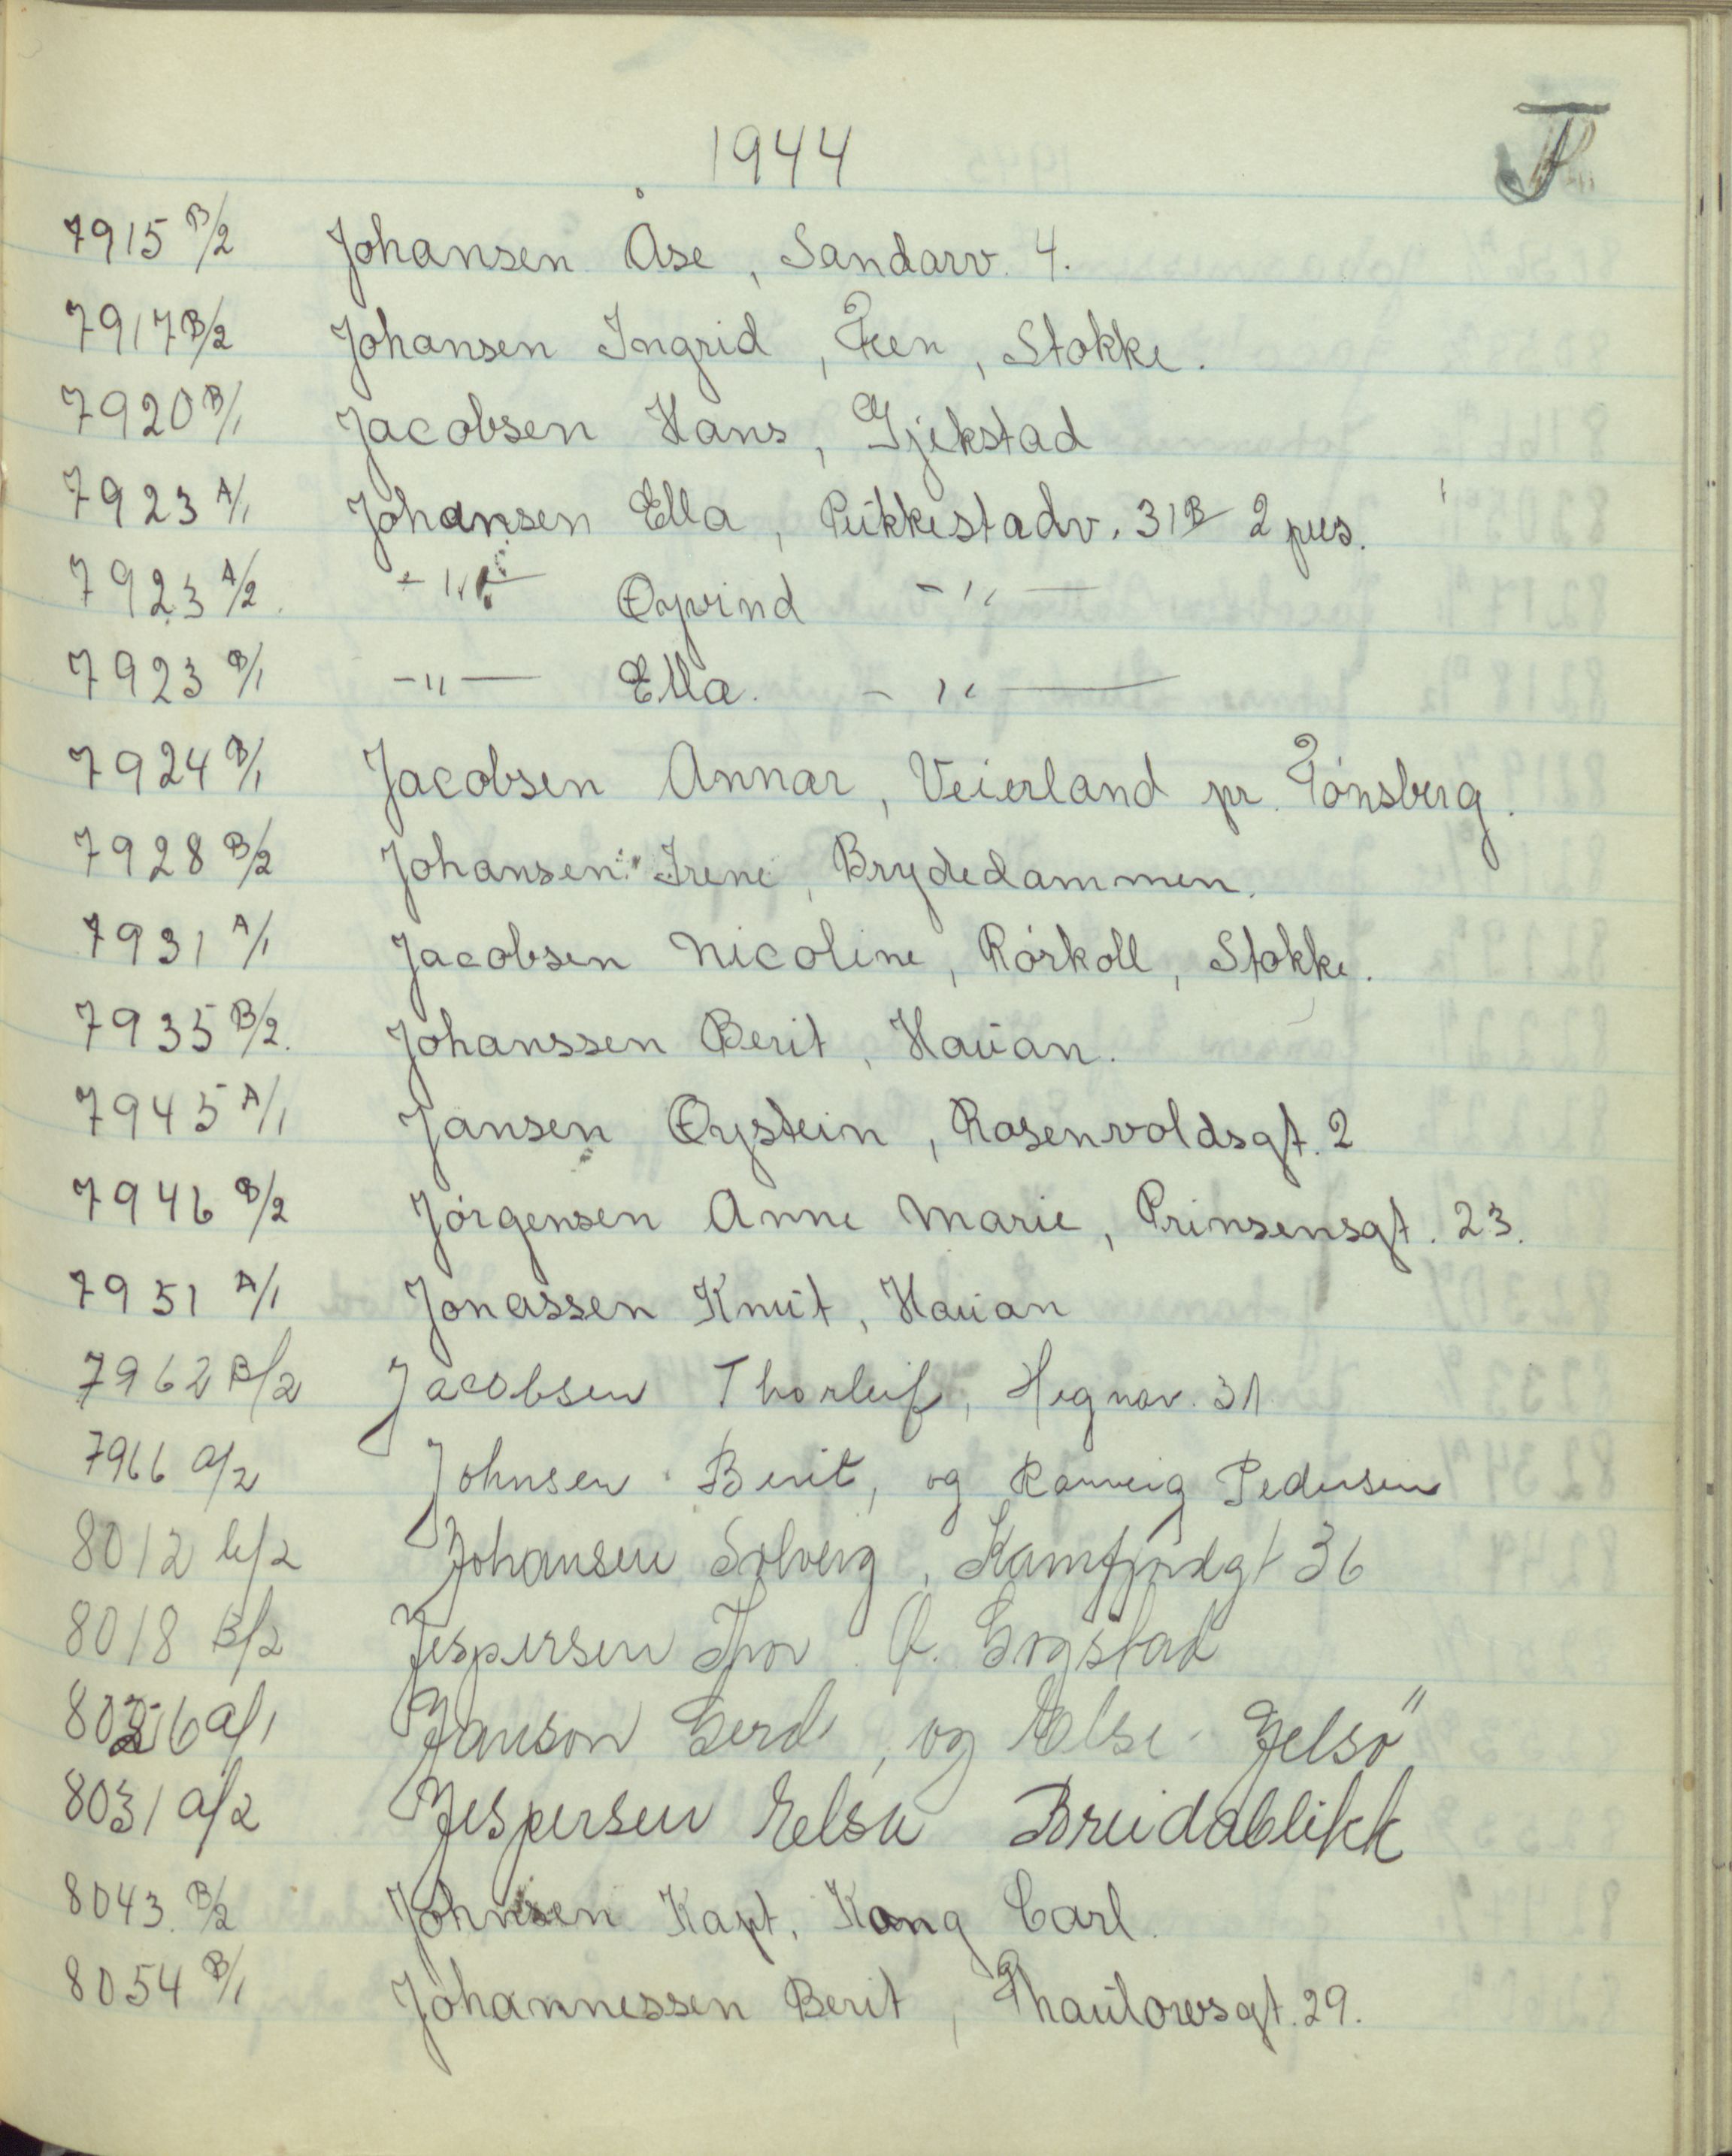 1944
J
7915 B/2 Johansen Åse, Sandarv. 4.
7917 B/2 Johansen Ingrid, Feen, Stokke.
7920 B/1 Jacobsen Hans, Gjekstad
7923 A/1 Johansen Ella, Pukkestadv. 31B 2 pers.
7923 A/2 -"- Øyvind -"-
7923 B/1 -"- Ella. -"-
7924 B/1 Jacobsen Annar, Veierland pr. Tønsberg.
7928 B/2 Johansen Irene, Brydedammen.
7931 A/1 Jacobsen Nicoline, Rørkoll, Stokke.
7935 B/2. Johanssen Berit, Hauan.
7945 A/1 Jansen Øystein, Rosenvoldsgt. 2
7946 B/2 Jørgensen Anne Marie, Prinsensgt. 23.
7951 A/1 Jonassen Knut, Hauan
7962 B/2 Jacobsen Thorleif, Hegnav. 31
7966 a/2 Johnsen Berit, og Ranveig Pedersen
8012 b/2 Johansen Solveig, Kamfjordgt 36
8018 B/2 Jespersen Thor Ø. Gogstad
80 6 a/1 Janson Gerd, og Else. Jelsø"
8031 a/2 Jespersen Elsa Breidablikk
8043. B/2 Johnsen Kapt. Kong Carl.
8054 B/1 Johannessen Berit, Thaulowsgt. 29.